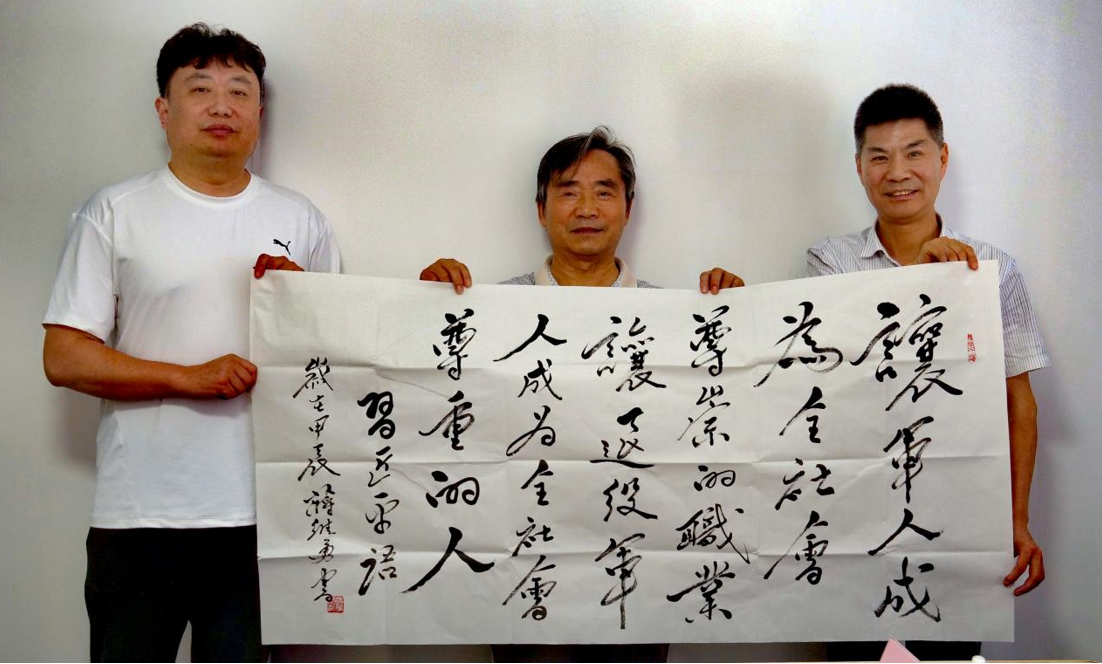 讓軍人成
為全社會
尊崇的職業
讓退役軍
人成为全社會
尊重的人
習近平語
歲在甲辰 繼勇書